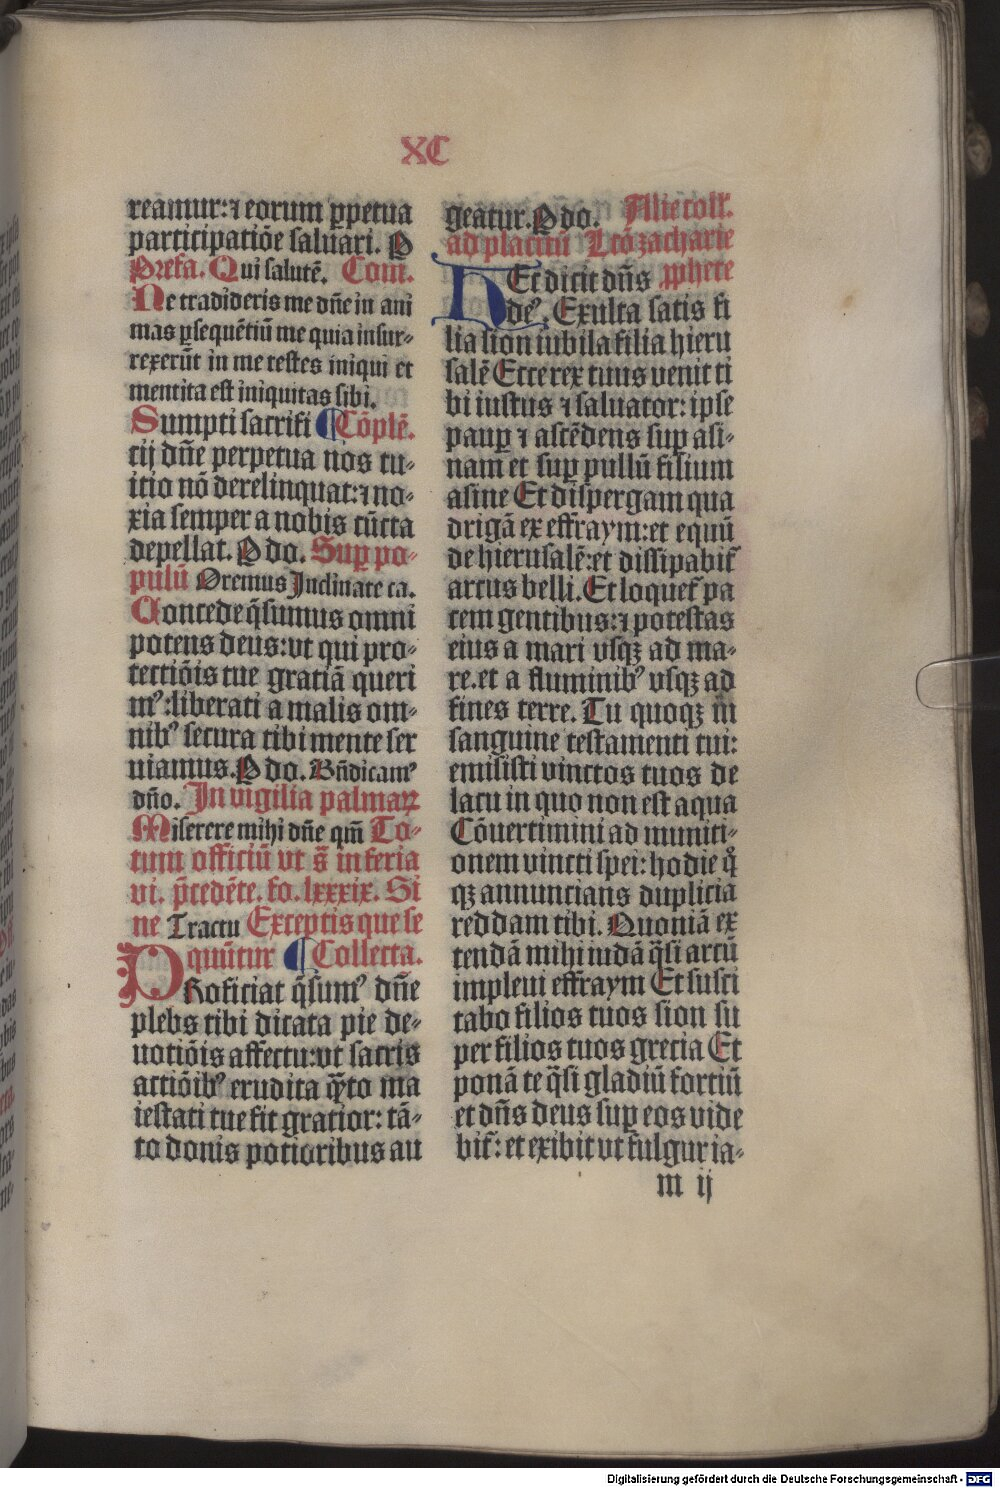 XC
reāmur: ⁊ eorum ꝑpetua
participatiōe saluari. P
Prefa. Qui salutē. Com.
Ne tradideris me dn̄e in ani
mas ꝑsequētiū me quia insur-
rexerūt in me testes iniqui et
mentita est iniquitas sibi.
Sumpti sacrifi ¶ Cōplē.
cij dn̄e perpetua nos tu-
itio nō derelinquat: ⁊ no-
xia semper a nobis cūcta
depellat. P do. Suꝑ po-
pulū Oremus Inclinate ca.
Concede q̄sumus omni
potens deus: vt qui pro-
tectiōis tue gratiā queri
mꝰ: liberati a malis om-
nibꝰ secura tibi mente ser
uiamus. P do. Bn̄dicamꝰ
dn̄o. In vigilia palmaꝝ
Miserere mihi dn̄e qm̄ To-
tum officiū vt s̄ in feria
vi. p̄cedēte. fo. lxxxix. Si
ne Tractu Exceptis que se
quūtur ¶ Collecta.
PRoficiat q̄sumꝰ dn̄e
plebs tibi dicata pie de-
uotiōis affectu: vt sacris
actiōibꝰ erudita q̄to ma
iestati tue fit gratior: tā-
to donis potioribus au
geatur. P do. Alie coll.
ad placitū Lcō zacharie
Hec dicit dn̄s ꝓphete
deꝰ. Exulta satis fi
lia sion iubila filia hieru
salē Ecce rex tuus venit ti
bi iustus ⁊ saluator: ipse
pauꝑ ⁊ ascēdens suꝑ asi-
nam et suꝑ pullū filium
asine Et dispergam qua
drigā ex effraym: et equū
de hierusalē: et dissipabit᷑
arcus belli. Et loquet᷑ pa
cem gentibus: ⁊ potestas
eius a mari vsqꝫ ad ma-
re. et a fluminibꝰ vsqꝫ ad
fines terre. Tu quoqꝫ in
sanguine testamenti tui:
emisisti vinctos tuos de
lacu in quo non est aqua
Cōuertimini ad muniti-
onem vincti spei: hodie q̊
qꝫ annuncians duplicia
reddam tibi. Quoniā ex
tendā mihi iudā q̄si arcū
impleui effraym Et susci
tabo filios tuos sion su
per filios tuos grecia Et
ponā te q̄si gladiū fortiū
et dn̄s deus suꝑ eos vide
bit᷑: et exibit vt fulgur ia-
m ij
Digitalisierung gefördert durch die Deutsche Forschungsgemeinschaft - DFG